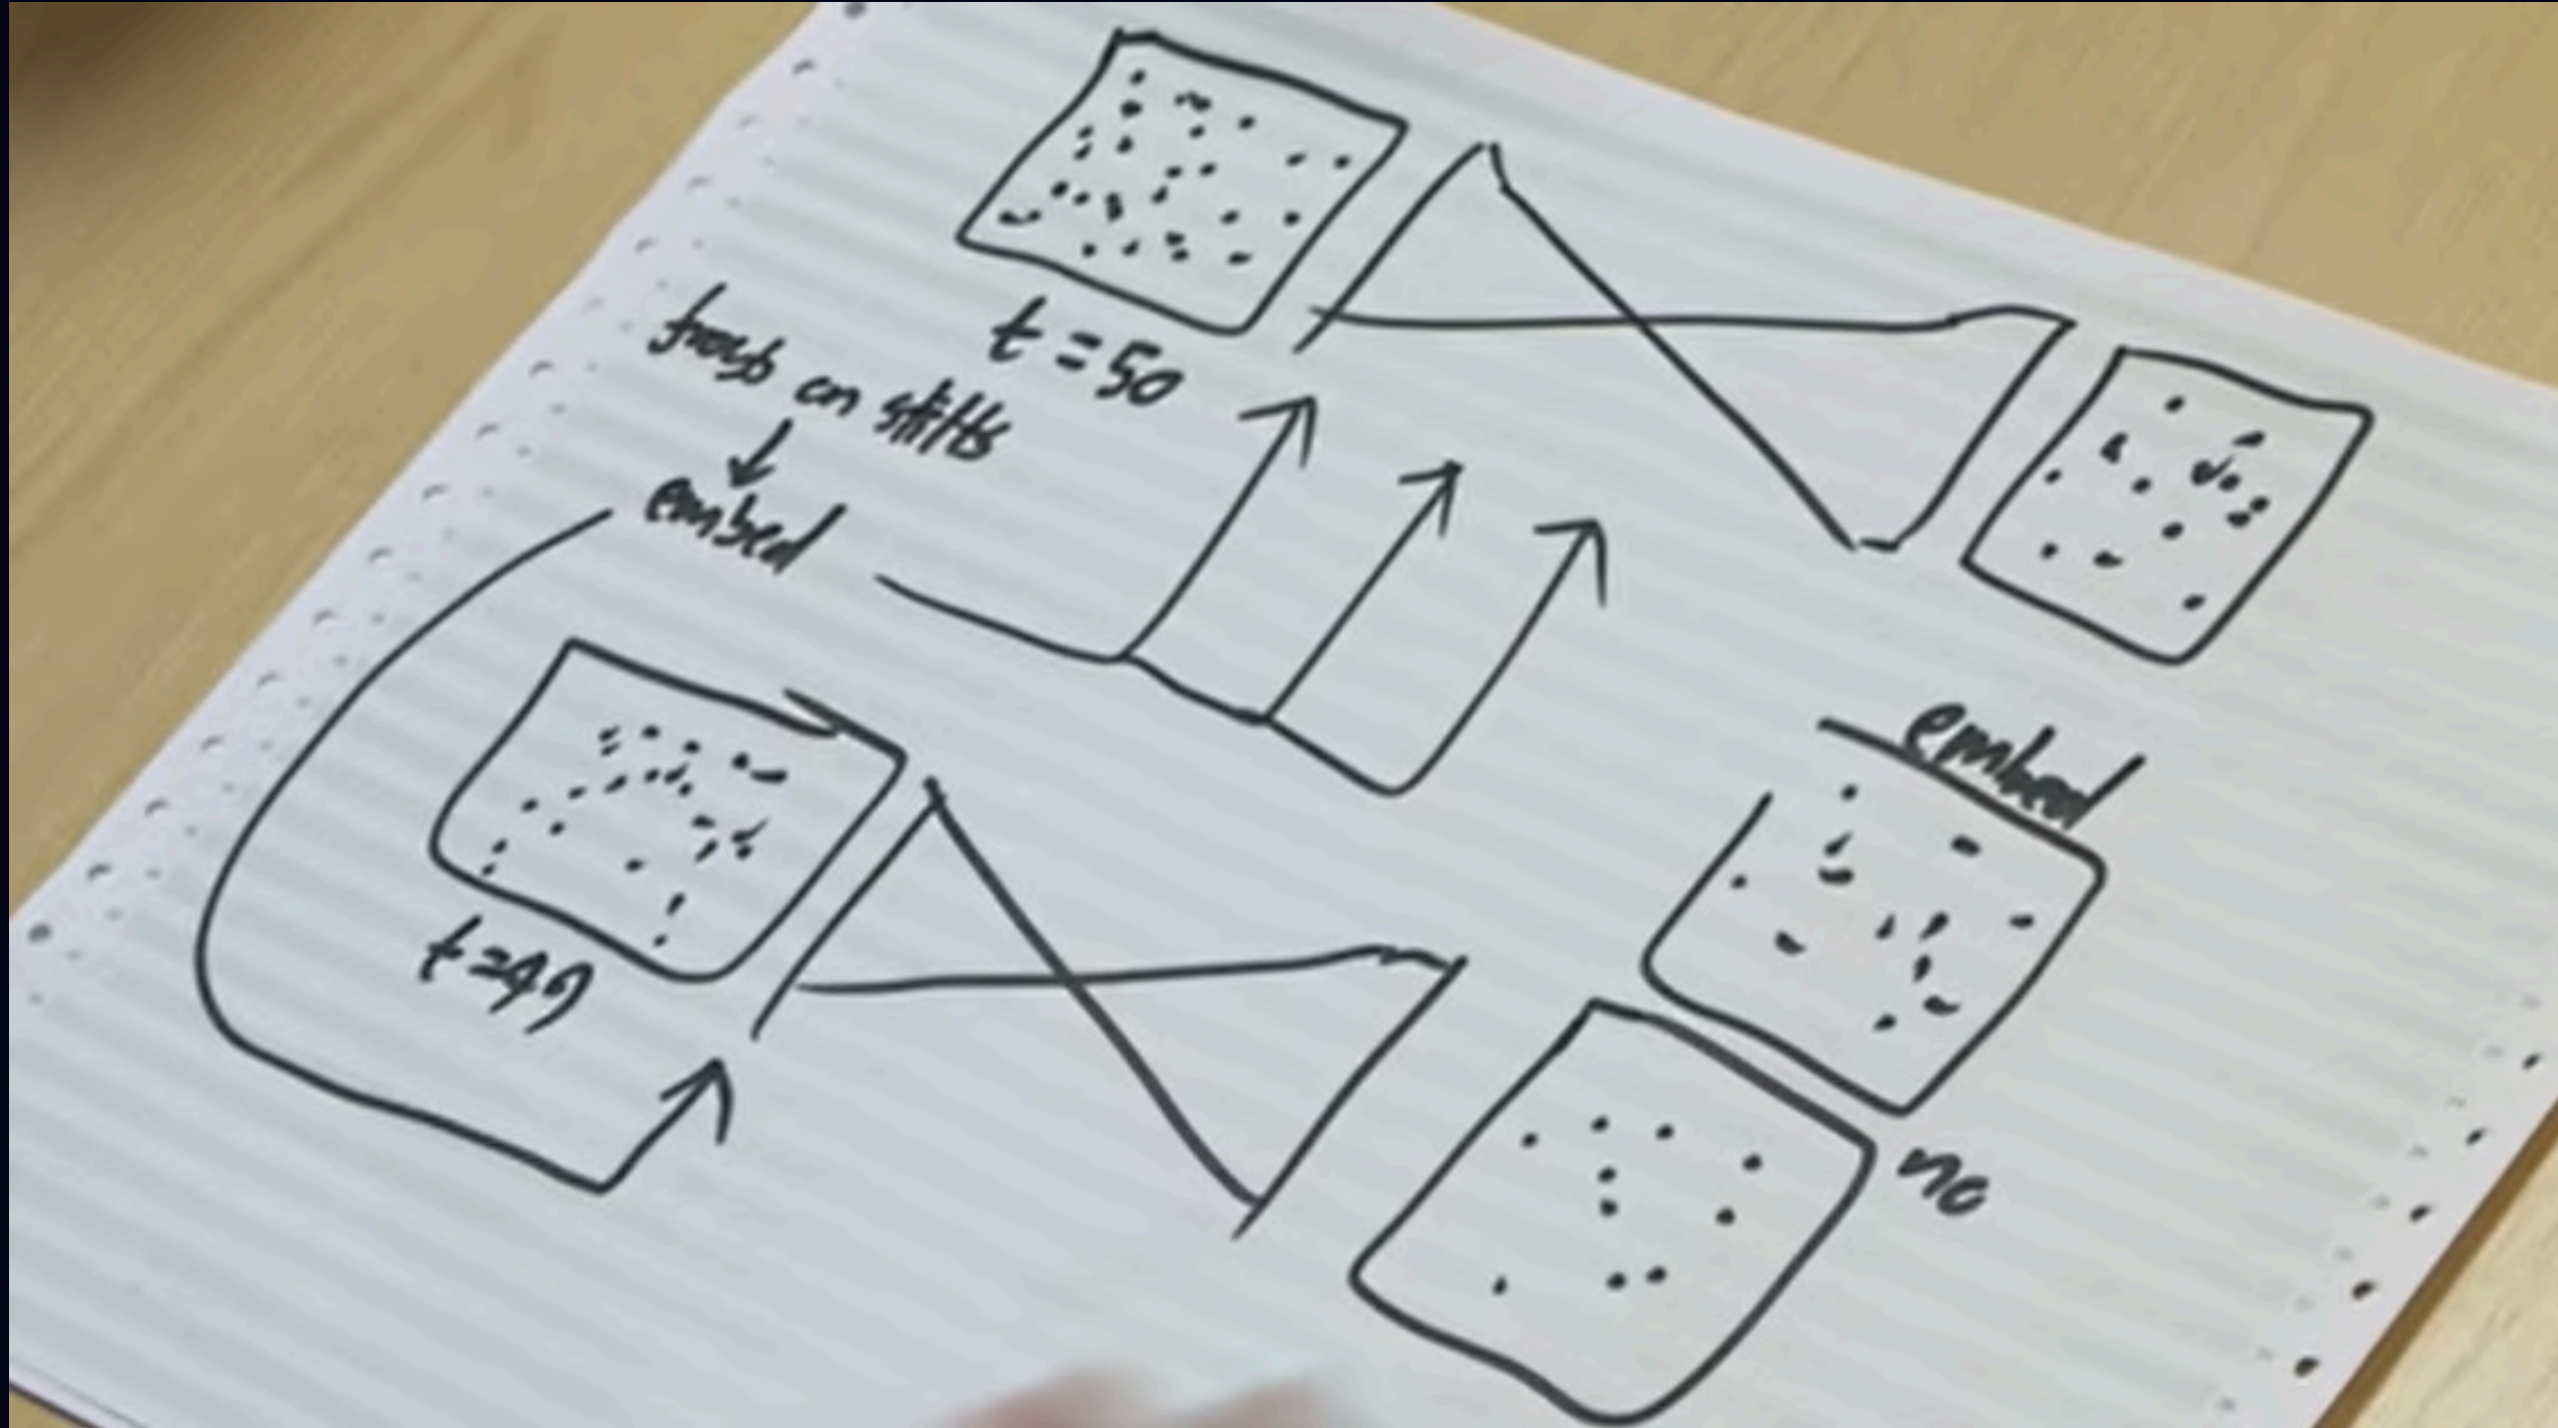 t = 50
frogs on stilts
embed
t = 49
embed
no